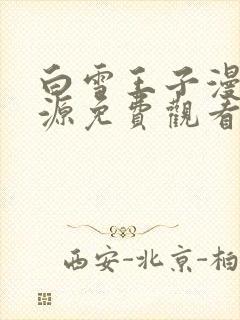 白雪王子漫
源免費觀看
西安-北京-柏